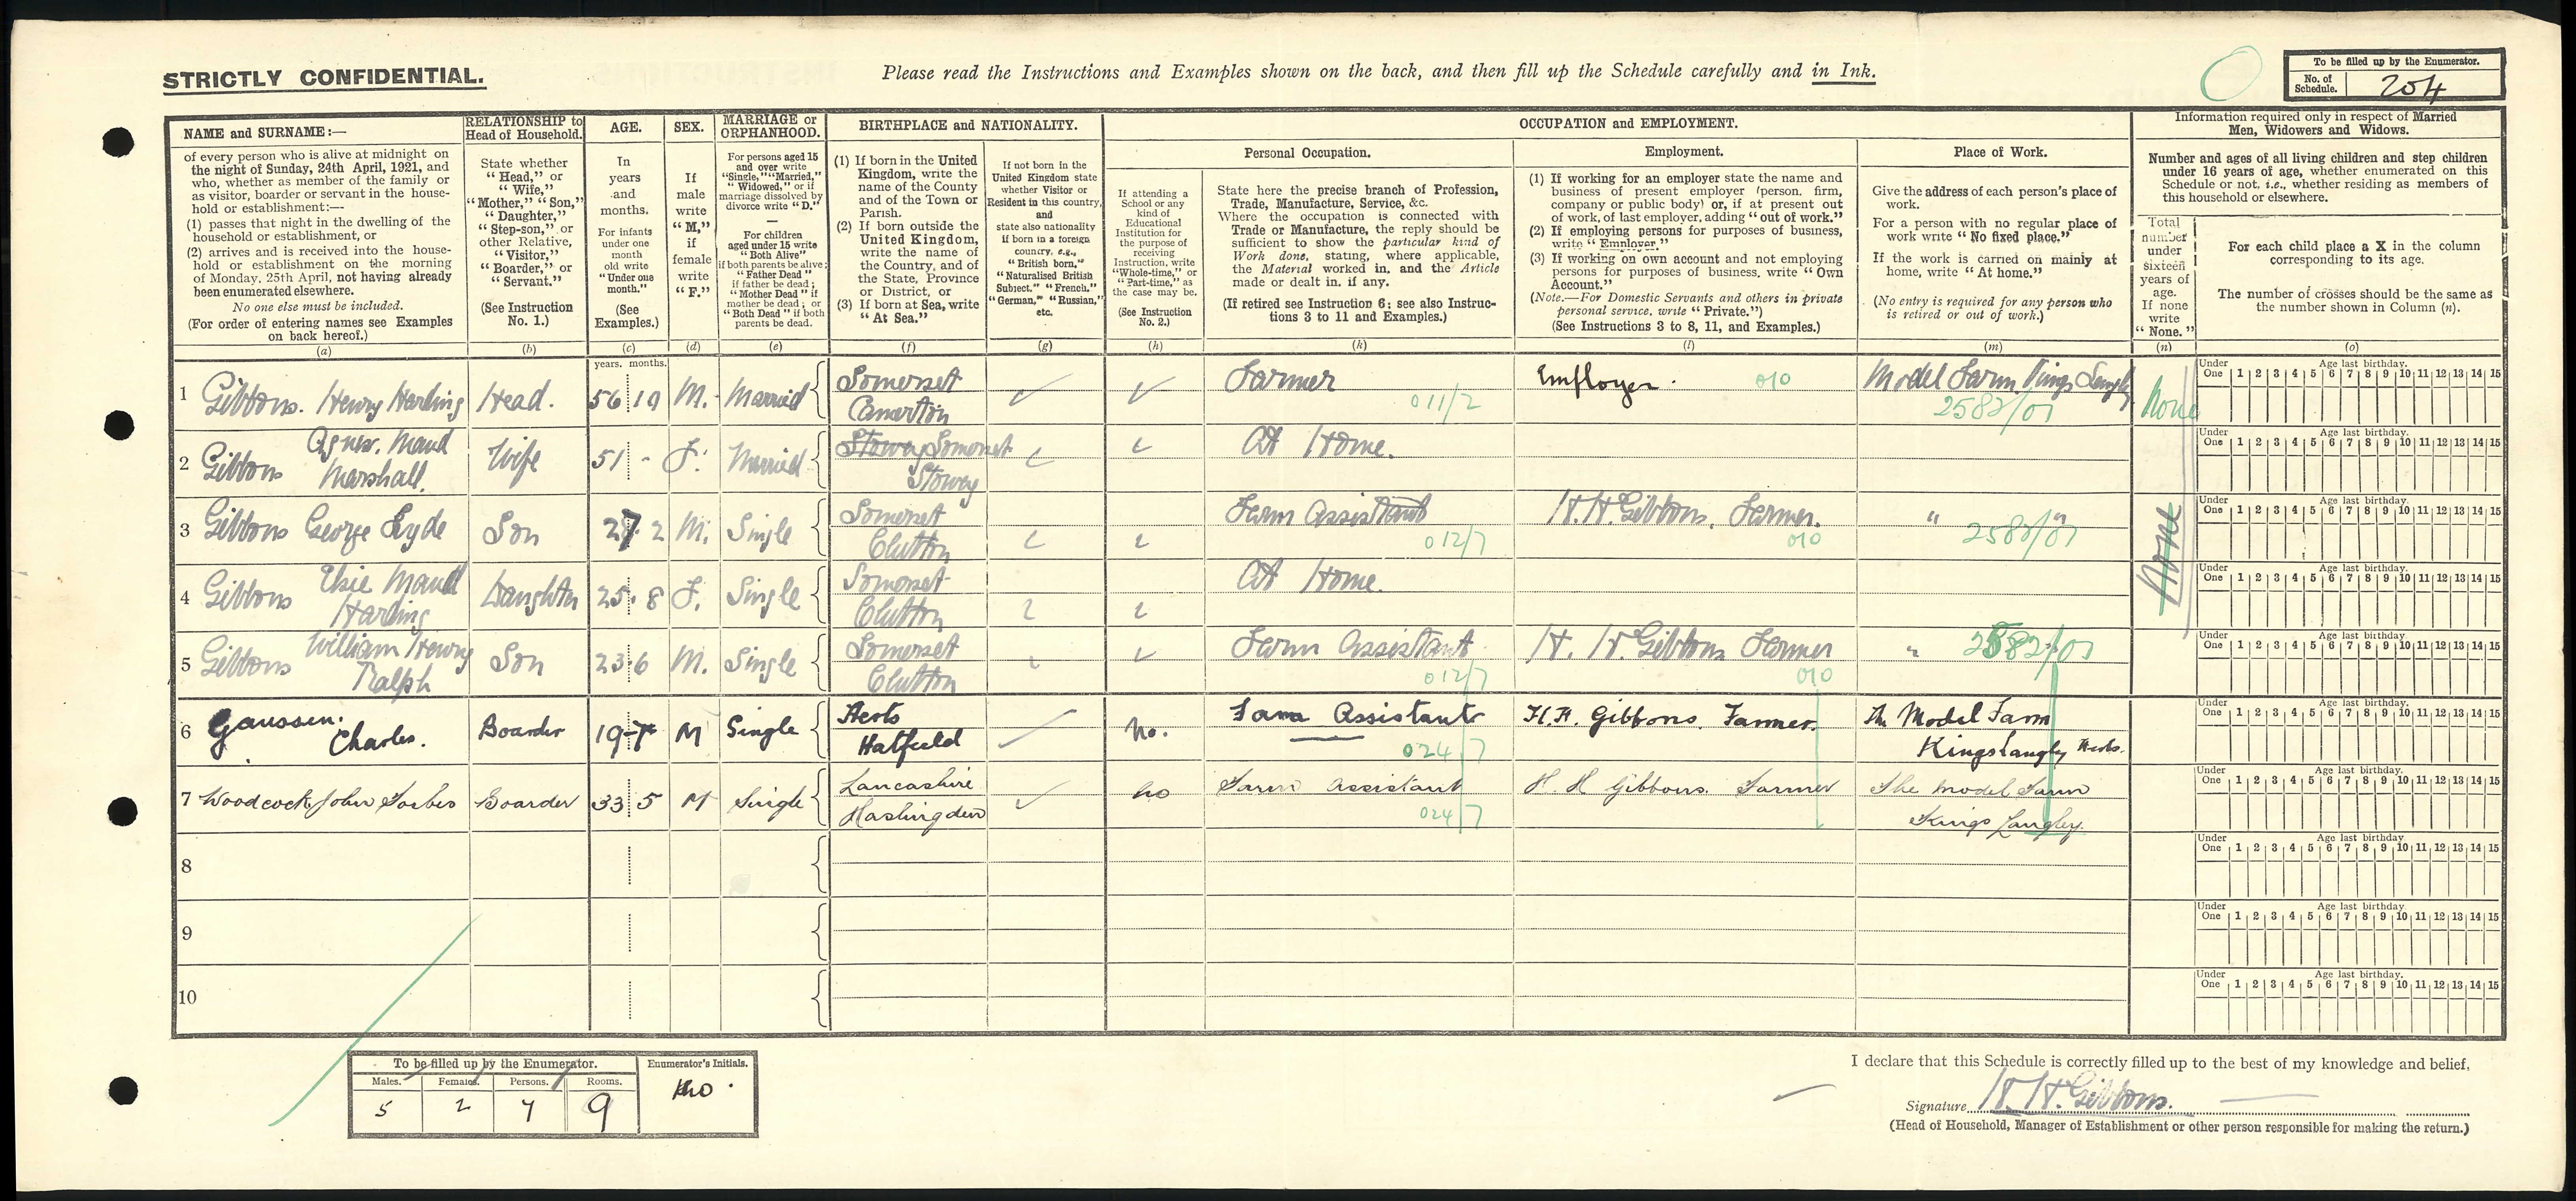 STRICTLY CONFIDENTIAL.
Please read the Instructions and Examples shown on the back, and then fill up the Schedule carefully and in Ink.
To be filled up by the Enumerator.
No. of Schedule. 204
NAME and SURNAME:—
of every person who is alive at midnight on
the night of Sunday, 24th April, 1921, and
who, whether as member of the family or
as visitor, boarder or servant in the house-
hold or establishment:—
(1) passes that night in the dwelling of the
household or establishment, or
(2) arrives and is received into the house-
hold or establishment on the morning
of Monday, 25th April, not having already
been enumerated elsewhere.
No one else must be included.
(For order of entering names see Examples
on back hereof.)
(a)
RELATIONSHIP to
Head of Household.
State whether
"Head," or
"Wife,"
"Mother," "Son,"
"Daughter,"
"Step-son," or
other Relative,
"Visitor,"
"Boarder," or
"Servant."
(See Instruction
No. 1.)
(b)
AGE.
In
years
and
months.
For infants
under one
month
old write
"Under one
month."
(See
Examples.)
(c)
years. months.
SEX.
If
male
write
"M,"
if
female
write
"F."
(d)
MARRIAGE or
ORPHANHOOD.
For persons aged 15
and over write
"Single," "Married,"
"Widowed," or if
marriage dissolved by
divorce write "D."
For children
aged under 15 write
"Both Alive"
if both parents be alive;
"Father Dead"
if father be dead;
"Mother Dead" if
mother be dead; or
"Both Dead" if both
parents be dead.
(e)
BIRTHPLACE and NATIONALITY.
(1) If born in the United
Kingdom, write the
name of the County
and of the Town or
Parish.
(2) If born outside the
United Kingdom,
write the name of
the Country, and of
the State, Province
or District, or
(3) If born at Sea, write
"At Sea."
(f)
If not born in the
United Kingdom state
whether Visitor or
Resident in this country,
and
state also nationality
if born in a foreign
country, e.g.,
"British born,"
"Naturalised British
Subject," "French,"
"German," "Russian,"
etc.
(g)
OCCUPATION and EMPLOYMENT.
If attending a
School or any
kind of
Educational
Institution for
the purpose of
receiving
Instruction, write
"Whole-time," or
"Part-time," as
the case may be.
(See Instruction
No. 2.)
(h)
Personal Occupation.
State here the precise branch of Profession,
Trade, Manufacture, Service, &c.
Where the occupation is connected with
Trade or Manufacture, the reply should be
sufficient to show the particular kind of
Work done, stating, where applicable,
the Material worked in, and the Article
made or dealt in, if any.
(If retired see Instruction 6; see also Instruc-
tions 3 to 11 and Examples.)
(k)
Employment.
(1) If working for an employer state the name and
business of present employer (person, firm,
company or public body) or, if at present out
of work, of last employer, adding "out of work."
(2) If employing persons for purposes of business,
write "Employer."
(3) If working on own account and not employing
persons for purposes of business, write "Own
Account."
(Note.—For Domestic Servants and others in private
personal service, write "Private.")
(See Instructions 3 to 8, 11, and Examples.)
(l)
Place of Work.
Give the address of each person's place of
work.
For a person with no regular place of
work write "No fixed place."
If the work is carried on mainly at
home, write "At home."
(No entry is required for any person who
is retired or out of work.)
(m)
Information required only in respect of Married
Men, Widowers and Widows.
Number and ages of all living children and step children
under 16 years of age, whether enumerated on this
Schedule or not, i.e., whether residing as members of
this household or elsewhere.
Total
number
under
sixteen
years of
age.
If none
write
"None."
(n)
For each child place a X in the column
corresponding to its age.
The number of crosses should be the same as
the number shown in Column (n).
(o)
1 Gibbons. Henry Harding Head. 56 10 M. Married Somerset Camerton Farmer 011/2 Employer. 010 Model Farm Kings Langley 2582/01 None
Under One Age last birthday. 1 2 3 4 5 6 7 8 9 10 11 12 13 14 15
2 Gibbons Agnes. Maud Marshall. Wife 51 - F. Married Stowey Somerset Stowey At Home.
Under One Age last birthday. 1 2 3 4 5 6 7 8 9 10 11 12 13 14 15
3 Gibbons George Lyde Son 27 2 M. Single Somerset Clutton Farm Assistant 012/7 H.H. Gibbons. Farmer. 010 " " 2582/01 None
Under One Age last birthday. 1 2 3 4 5 6 7 8 9 10 11 12 13 14 15
4 Gibbons Elsie Maud Harding Daughter 25 8 F. Single Somerset Clutton At Home.
Under One Age last birthday. 1 2 3 4 5 6 7 8 9 10 11 12 13 14 15
5 Gibbons William Henry Ralph Son 23 6 M. Single Somerset Clutton Farm Assistant 012/7 H. H. Gibbons Farmer 010 " 2582/01
Under One Age last birthday. 1 2 3 4 5 6 7 8 9 10 11 12 13 14 15
6 Gaussen. Charles. Boarder 19-7 M Single Herts Hatfield No. Farm Assistant 024/7 H.H. Gibbons. Farmer. The Model Farm Kings Langley Herts.
Under One Age last birthday. 1 2 3 4 5 6 7 8 9 10 11 12 13 14 15
7 Woodcock John Forbes Boarder 33 5 M Single Lancashire Haslingden no Farm Assistant 024/7 H. H Gibbons. Farmer The Model Farm Kings Langley.
Under One Age last birthday. 1 2 3 4 5 6 7 8 9 10 11 12 13 14 15
8
Under One Age last birthday. 1 2 3 4 5 6 7 8 9 10 11 12 13 14 15
9
Under One Age last birthday. 1 2 3 4 5 6 7 8 9 10 11 12 13 14 15
10
Under One Age last birthday. 1 2 3 4 5 6 7 8 9 10 11 12 13 14 15
To be filled up by the Enumerator.
Males. Females. Persons. Rooms.
5 2 7 9
Enumerator's Initials.
I declare that this Schedule is correctly filled up to the best of my knowledge and belief,
Signature H. H. Gibbons.
(Head of Household, Manager of Establishment or other person responsible for making the return.)